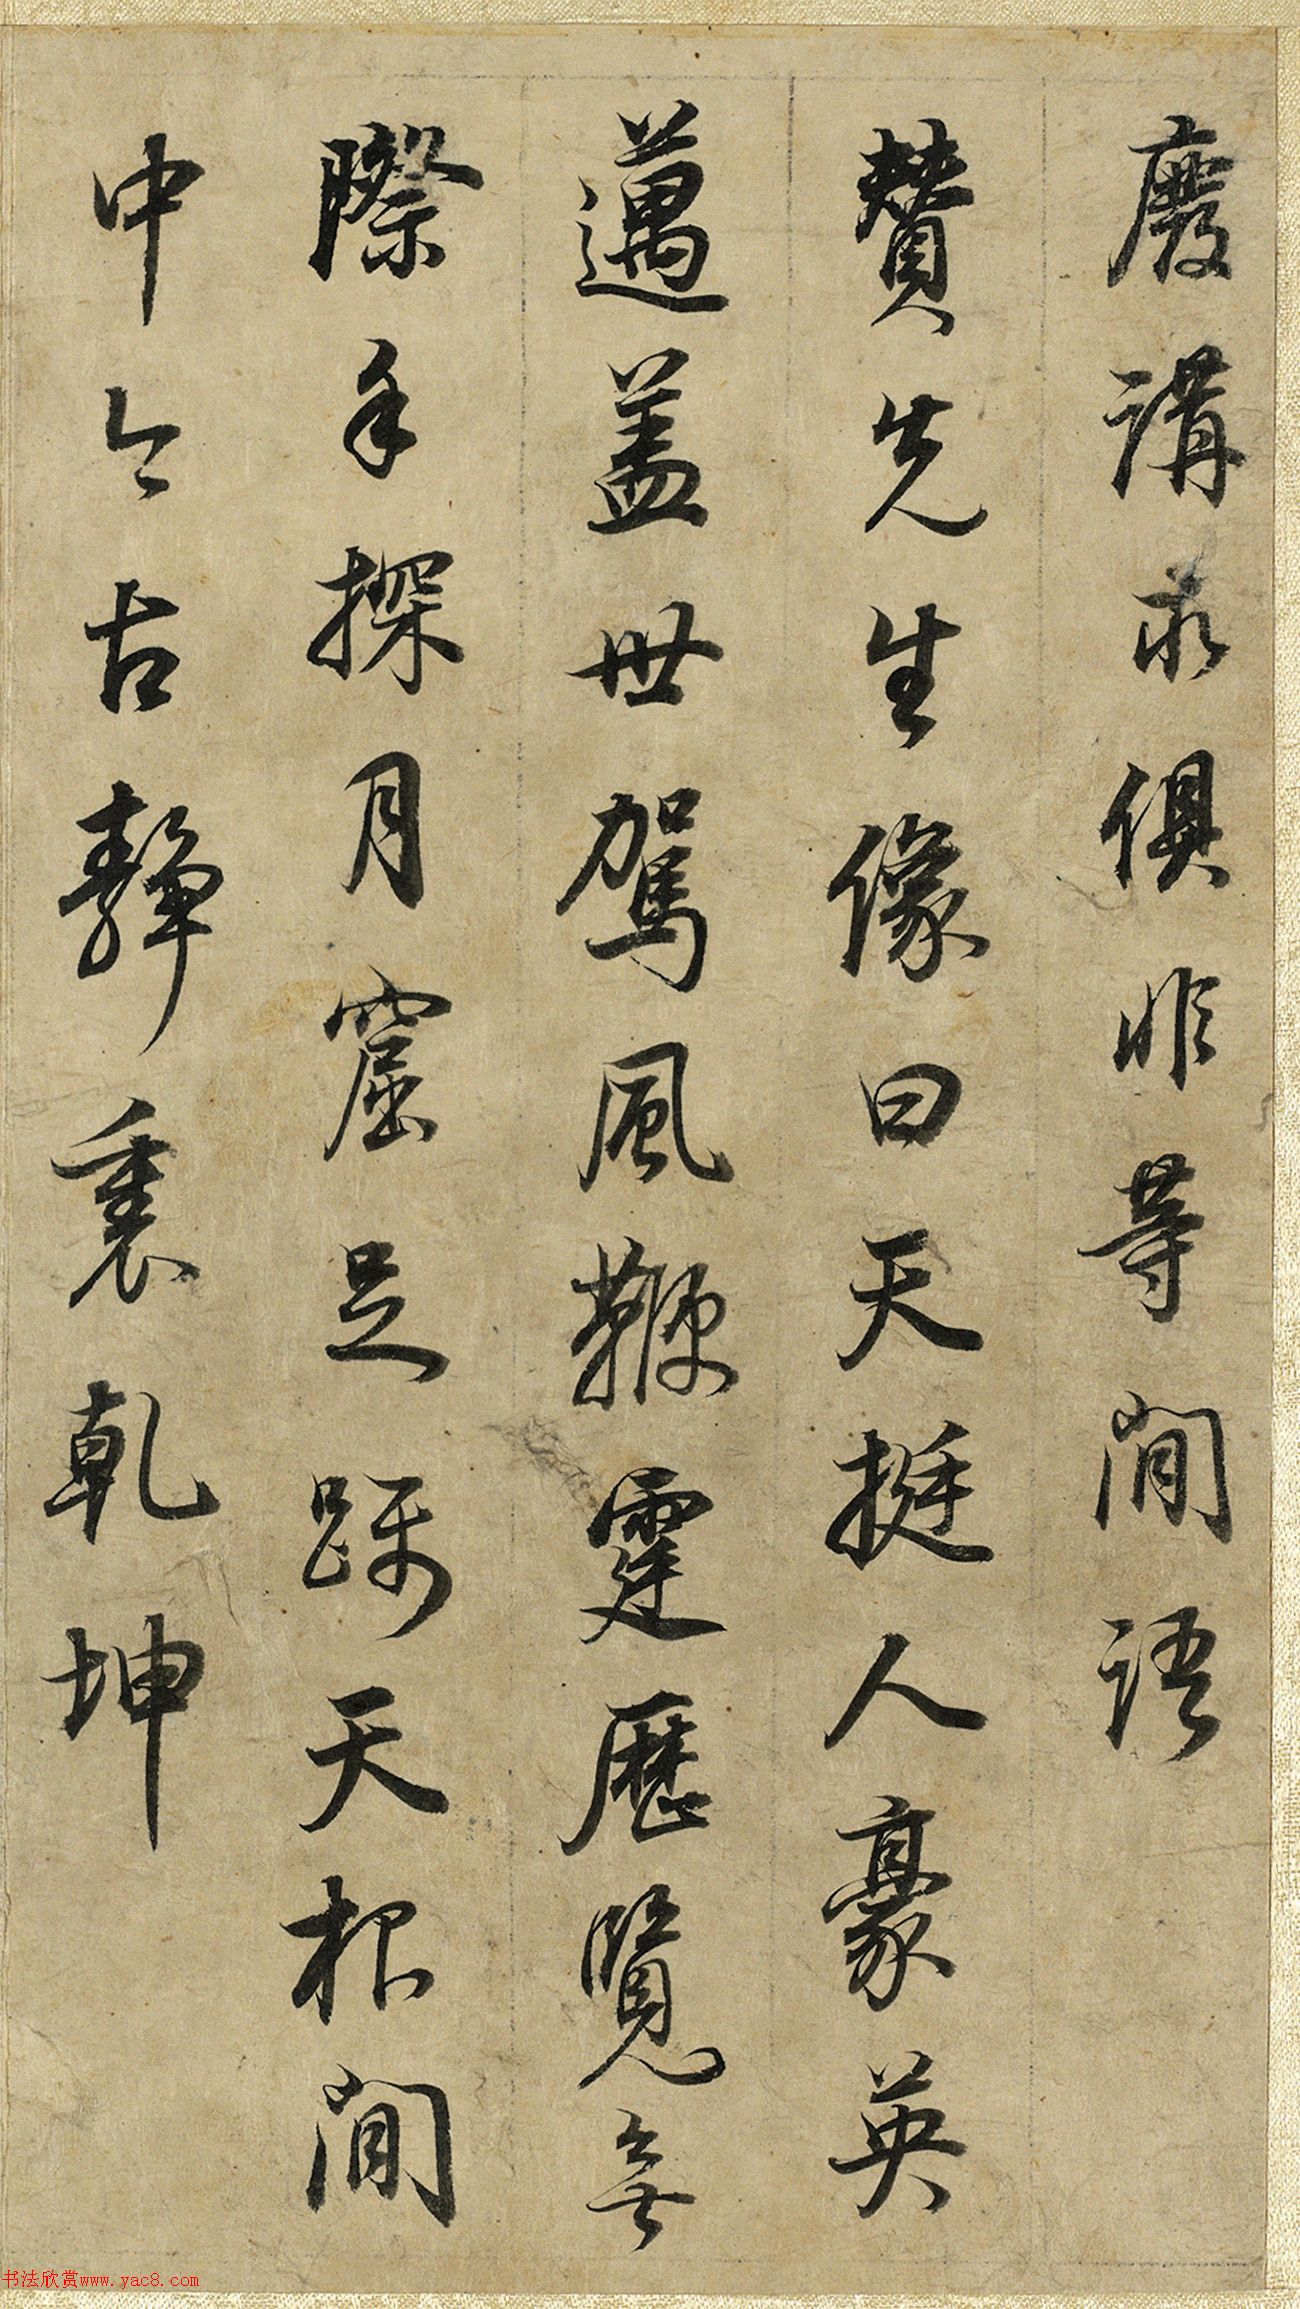 廢講求俱非等閒語
贊先生像曰天挺人豪英
邁盖世駕風鞭霆歷覽無
際手探月窟足躡天根閒
中今古靜裏乾坤
书法欣赏www.yac8.com